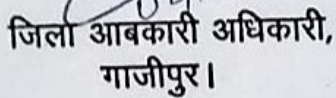 जिला आबकारी अधिकारी,
गाजीपुर।